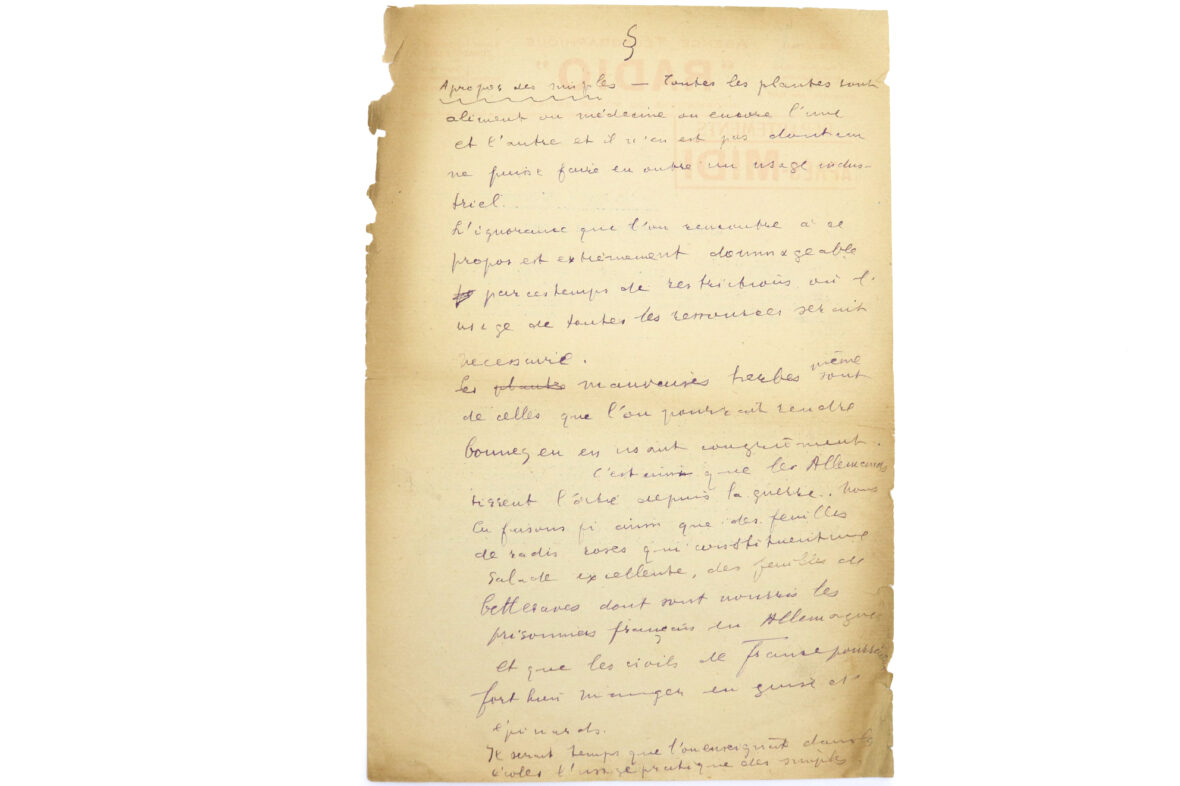 §
A propos des simples — Toutes les plantes sont
aliment ou médecine ou encore l'une
et l'autre et il n'en est pas dont on
ne puisse faire en outre un usage indus-
triel.
L'ignorance que l'on rencontre à ce
propos est extrêmement dommageable
par ces temps de restrictions où l'
usage de toutes les ressources serait
necessaire.
Les plantes mauvaises herbes même sont
de celles que l'on pourrait rendre
bonnes en en usant congrûment.
C'est ainsi que les Allemands
tissent l'ortie depuis la guerre. Nous
en fusons fi ainsi que des feuilles
de radis roses qui constituent une
salade excellente, des feuilles de
betteraves dont sont nourris les
prisonniers français en Allemagne
et que les civils de France
fort bien manger en guise d'
épinards.
Il serait temps que l'on enseignât dans les
écoles l'usage pratique des simples.
"RADIO"
MIDI